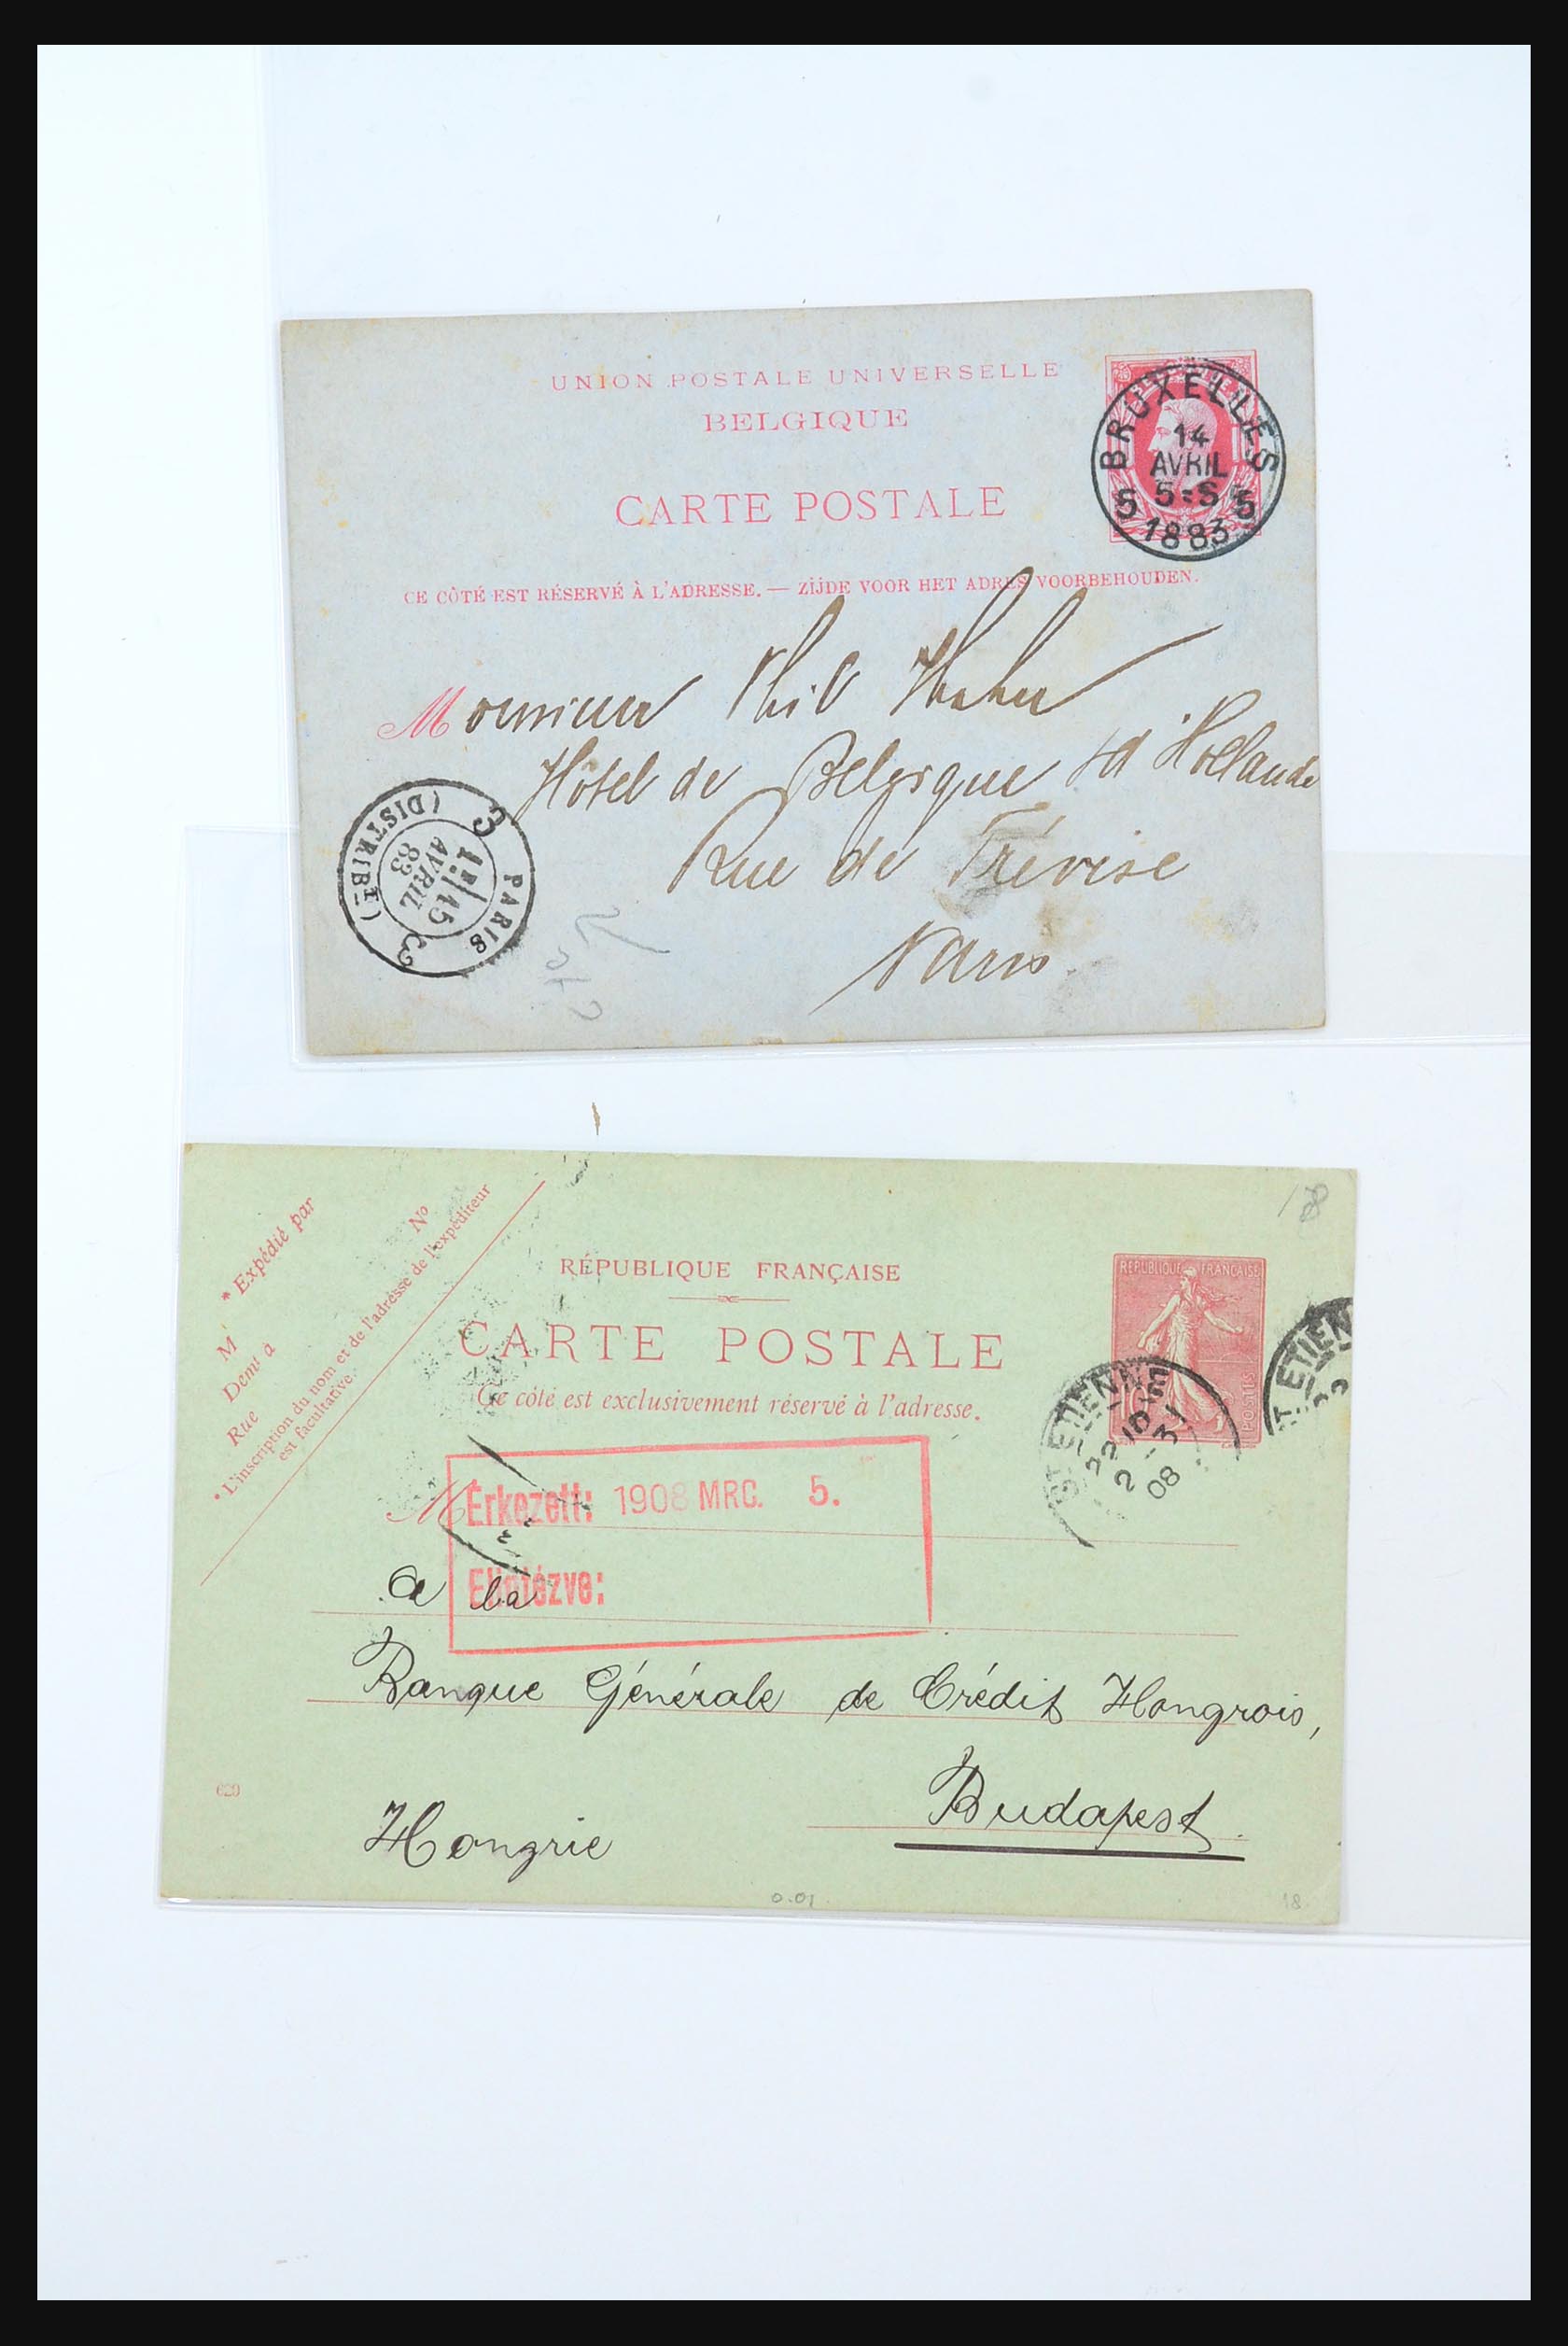 UNION POSTALE UNIVERSELLE
BELGIQUE
CARTE POSTALE
CE CÔTÉ EST RÉSERVÉ À L'ADRESSE. — ZIJDE VOOR HET ADRES VOORBEHOUDEN.
BRUXELLES
14
AVRIL
5=S
5 5
1883
Monsieur Phil
Hôtel de Belgique & d'Hollande
Rue de Trévise
Paris
PARIS
3 3
15
AVRIL
83
(DISTRIBN)
* Expédié par
M
No
Demt à
Rue
* L'inscription du nom et de l'adresse de l'expéditeur
est facultative.
RÉPUBLIQUE FRANÇAISE
CARTE POSTALE
Ce côté est exclusivement réservé à l'adresse.
REPUBLIQUE FRANÇAISE
POSTES
10
ST ETIENNE
2 - 3
08
T ETIEN
Érkezett: 1908 MRC. 5.
Elintézve:
M
a la
Banque Générale de Crédit Hongrois,
Budapest.
Hongrie
620
0.01
18